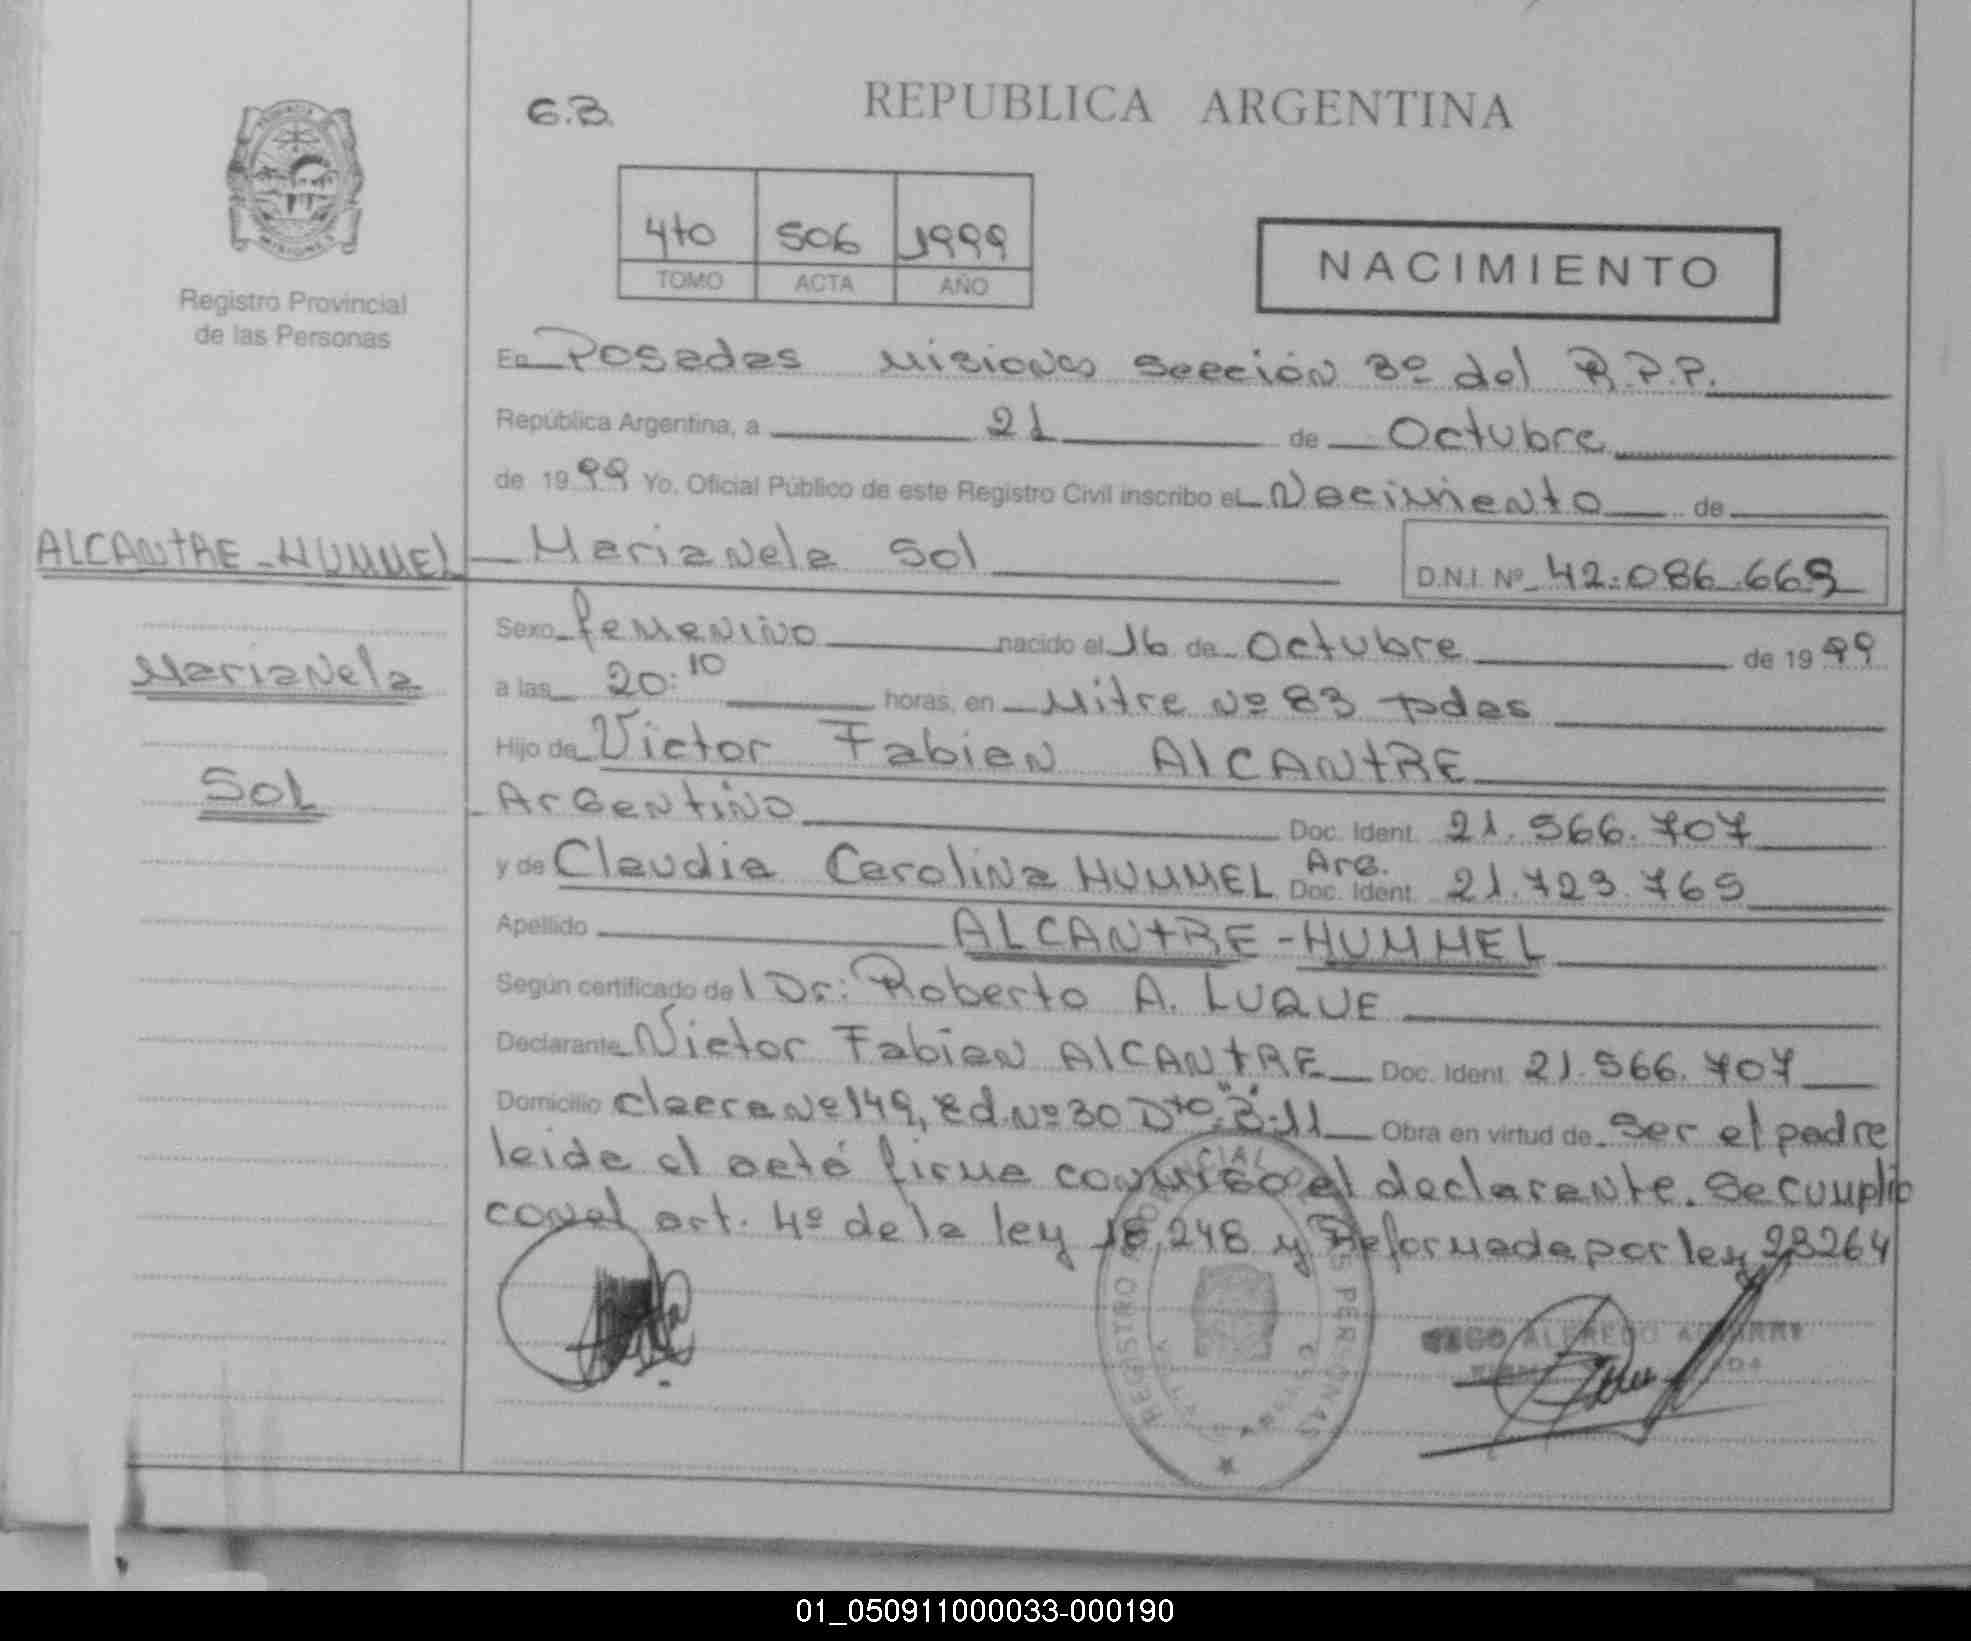 REPUBLICA ARGENTINA
G.B.
4to 506 1999
TOMO ACTA AÑO
NACIMIENTO
MISIONES
Registro Provincial
de las Personas
En Posadas Misiones Sección 3º del R.P.P.
República Argentina, a 21 de Octubre
de 1999 Yo, Oficial Público de este Registro Civil inscribo el Nacimiento de
ALCANTRE-HUMMEL Marianela Sol D.N.I. Nº 42.086.669
Sexo femenino nacido el 16 de Octubre de 1999
Marianela
a las 20:10 horas, en Mitre Nº 83 Pdas
Hijo de Victor Fabian AlCANTRE
Sol
Argentino Doc. Ident. 21.566.707
y de Claudia Carolina HUMMEL Arg. Doc. Ident. 21.723.765
Apellido ALCANTRE-HUMMEL
Según certificado del Dr: Roberto A. LUQUE
Declarante Victor Fabian AlCANTRE Doc. Ident. 21.566.707
Domicilio chacra Nº 149, Ed. Nº 30 Dto "B" 11 Obra en virtud de Ser el padre
leida el acta firma conmigo el declarante. Se cumplio
con el art. 4º de la ley 18,248 y Reformada por ley 23264
REGISTRO PROVINCIAL DE LAS PERSONAS
ALFREDO
01_050911000033-000190